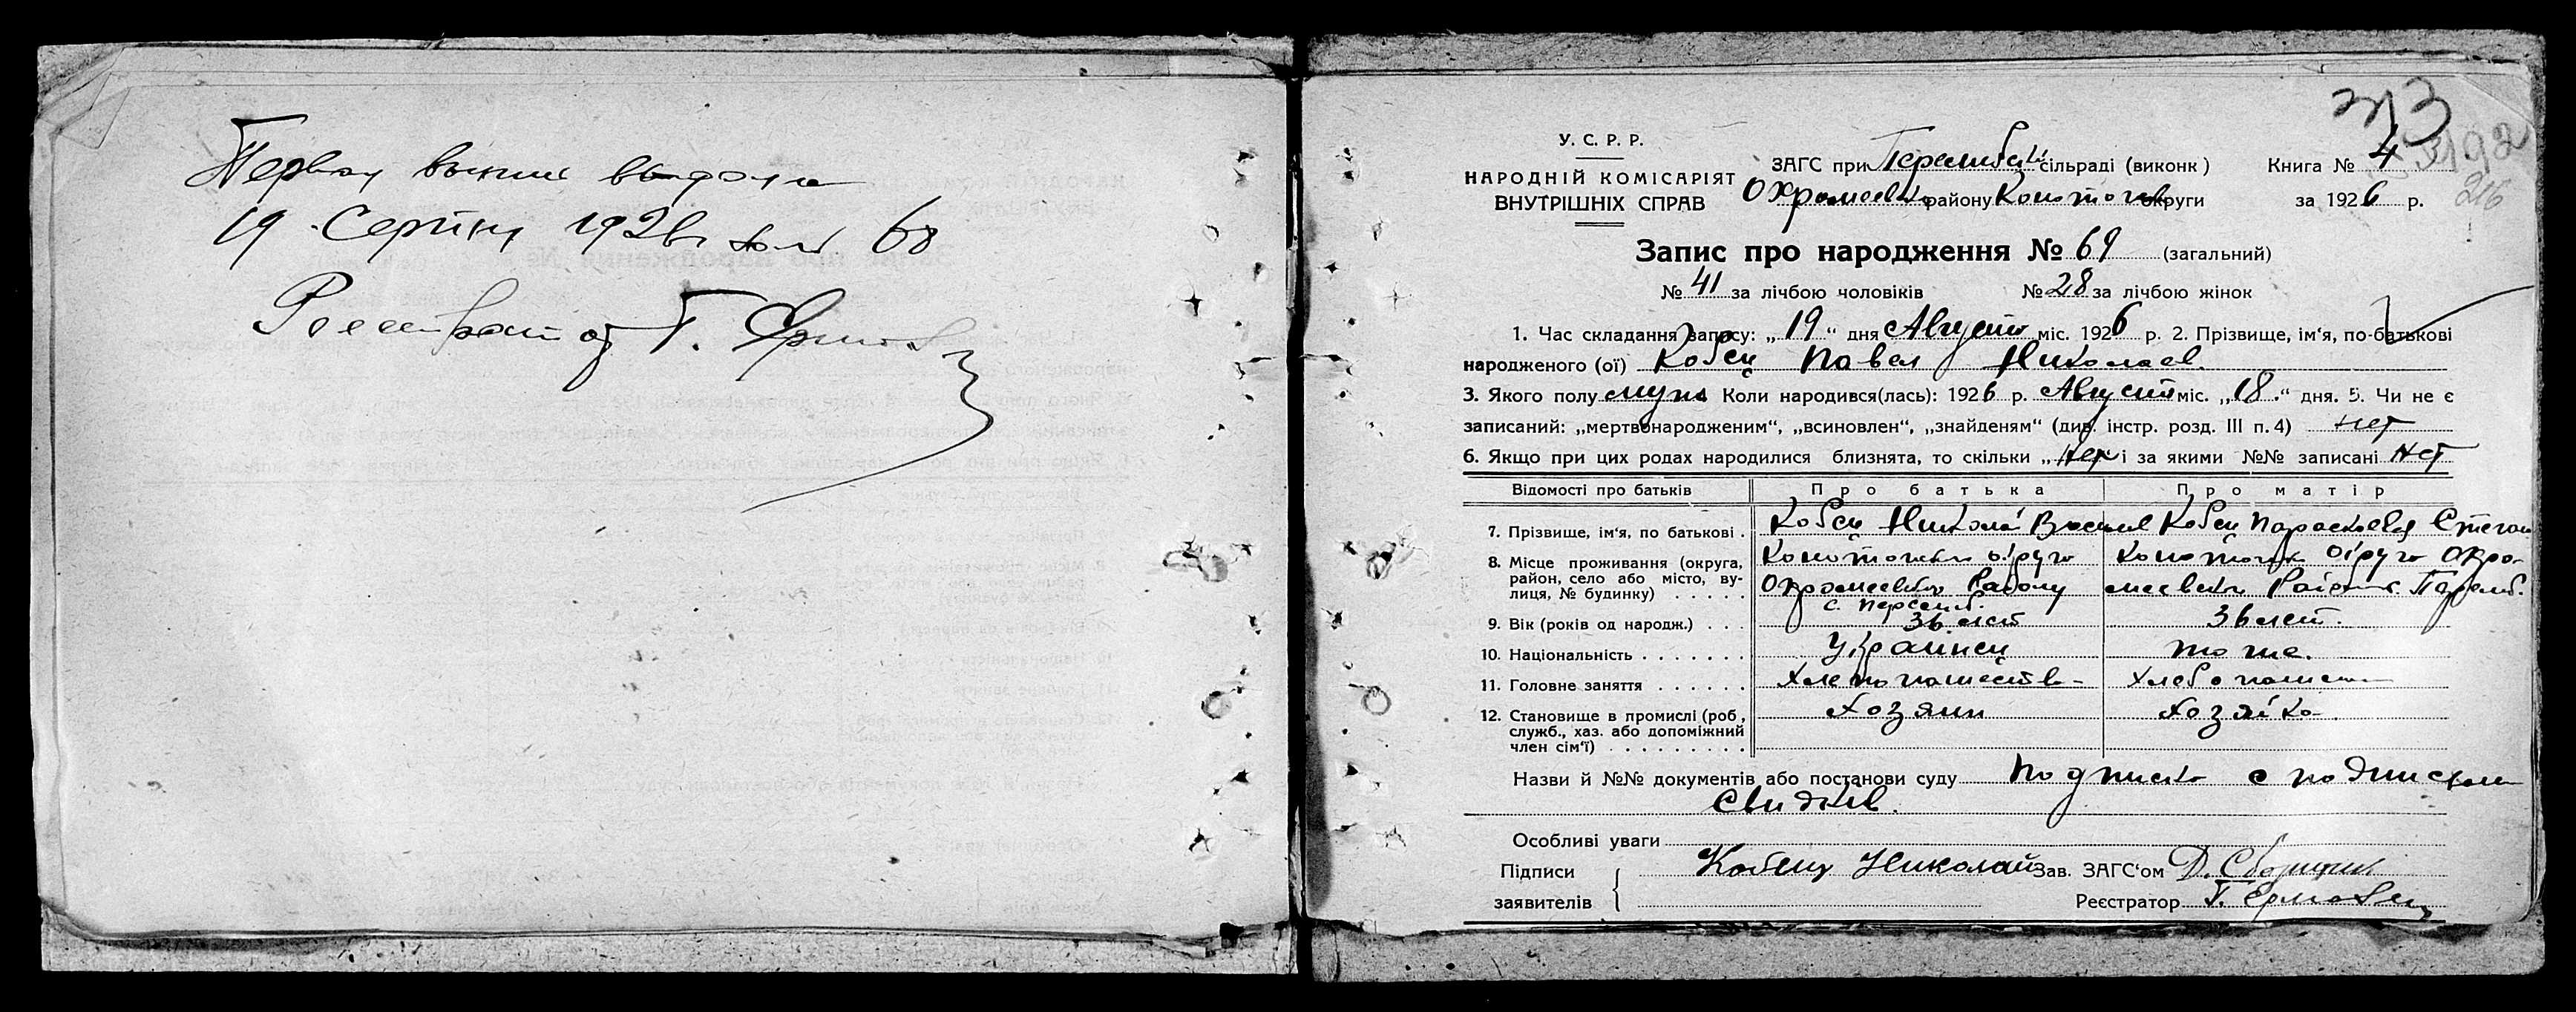 19 Серпня 1926 г. 68
Г.
313
192
216
У. С. Р. Р.
НАРОДНІЙ КОМІСАРІЯТ
ВНУТРІШНІХ СПРАВ
ЗАГС при сільраді (виконк)
Охрамеевск району Конотопск округи
Книга № 4
за 1926 р.
Запис про народження № 69 (загальний)
№ 41 за лічбою чоловіків № 28 за лічбою жінок
1. Час складання запису: „19“ дня Августа міс. 1926 р. 2. Прізвище, ім'я, по-батькові
народженого (ої) Кобец Павел Николаев.
3. Якого полу муж Коли народився(лась): 1926 р. Август міс. „18.“ дня. 5. Чи не є
записаний: „мертвонародженим“, „всиновлен“, „знайденям“ (див. інстр. розд. III п. 4) нет
6. Якщо при цих родах народилися близнята, то скільки „нет і за якими №№ записані нет
Відомості про батьків Про батька Про матір
7. Прізвище, ім'я, по батькові . Кобец Николай Васил Кобец Параскевия Степан
8. Місце проживання (округа, район, село або місто, вулиця, № будинку) . . . . .
Конотопск округ Охрамеевск Району с.
Конотопск округ Охрамеевск Район
9. Вік (років од народж.) . . . 36 лет 36 лет.
10. Національність . . . . . . . Украинец то же.
11. Головне заняття . . . . . .
12. Становище в промислі (роб, служб., хаз. або допоміжний член сім'ї) . . . . . . . . . Хозяин Хозяйка
Назви й №№ документів або постанови суду подписка с подписями
Свидетів.
Особливі уваги
Підписи заявителів { Кобец Николай Зав. ЗАГС'ом Д.
Реєстратор Г.